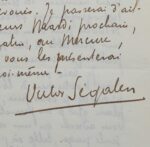 Je passerai d'ail-
Mardi prochain,
ou Mercure,
vous les présenterai
moi-même.
Victor Segalen